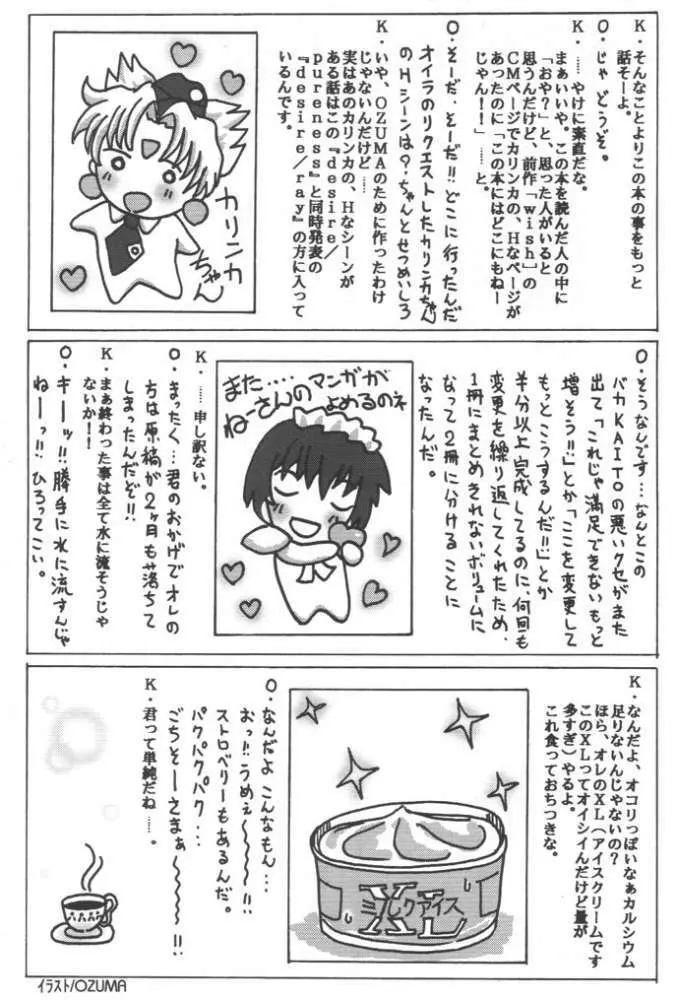 K.そんなことよりこの本の事をもっと
話そーよ。
O.じゃ どうぞ。
K.……やけに素直だな。
まぁいいや。この本を読んだ人の中に
「おや？」と、思った人がいると
思うんだけど、前作「wish」の
CMページでカリンカの、Hなページが
あったのに「この本にはどこにもねー
じゃん！！」……と。
O.そーだ．そーだ!!どこに行ったんだ
オイラのリクエストしたカリンカちゃん
のHシーンは？．ちゃんとせつめいしろ
K.いや、OZUMAのために作ったわけ
じゃないんだけど……
実はあのカリンカの、Hなシーンが
ある話はこの『desire／
pureness』と同時発表の
『desire／ray』の方に入って
いるんです。
カリンカ
ちゃん
O.そうなんです…なんとこの
バカKAITOの悪いクセがまた
出て「これじゃ満足できないもっと
増そう!!」とか「ここを変更して
もっとこうするんだ!!」とか
半分以上完成してるのに、何回も
変更を繰り返してくれたため、
1冊にまとめきれないボリュームに
なって2冊に分けることに
なったんだ。
また……マンガが
ねーさんのよめるのネ
K.……申し訳ない。
O.まったく…君のおかげでオレの
方は原稿が2ヶ月も落ちて
しまったんだぞ!!
K.まぁ終わった事は全て水に流そうじゃ
ないか！！
O.キーッ!!勝手に水に流すんじゃ
ねーっ!!ひろってこい。
K.なんだよ、オコリっぽいなぁカルシウム
足りないんじゃないの？
ほら、オレのXL（アイスクリームです
このXLってオイシイんだけど量が
多すぎ）やるよ。
これ食っておちつきな。
XL
ミルクアイス
O.なんだよ こんなもん…
おっ!!うめぇ〜〜〜!!
ストロベリーもあるんだ。
パクパクパク…
ごちそーさまぁ〜〜〜!!
K.君って単純だね……。
イラスト/OZUMA